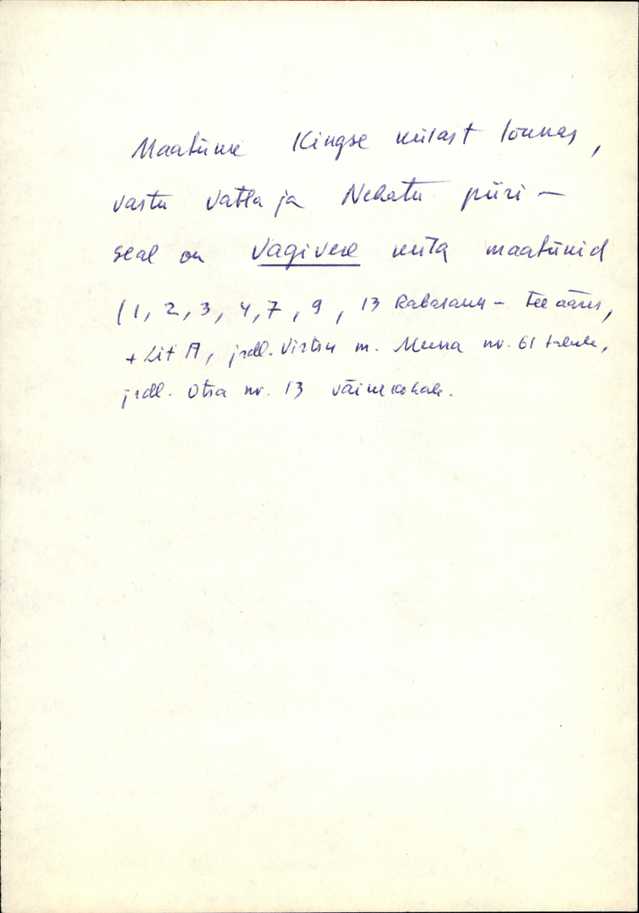 Maatükk Kingse külast lõunas,
vastu Vatla ja Nehatu piiri –
seal on Vagivere küla maatükid
(1, 2, 3, 4, 7, 9, 13 Rabasaare – Tee ääres,
+ Lit A, jrdl. Virtsu m. Muna nr. 61 talule,
jrdl. Otsa nr. 13 väinekohale.